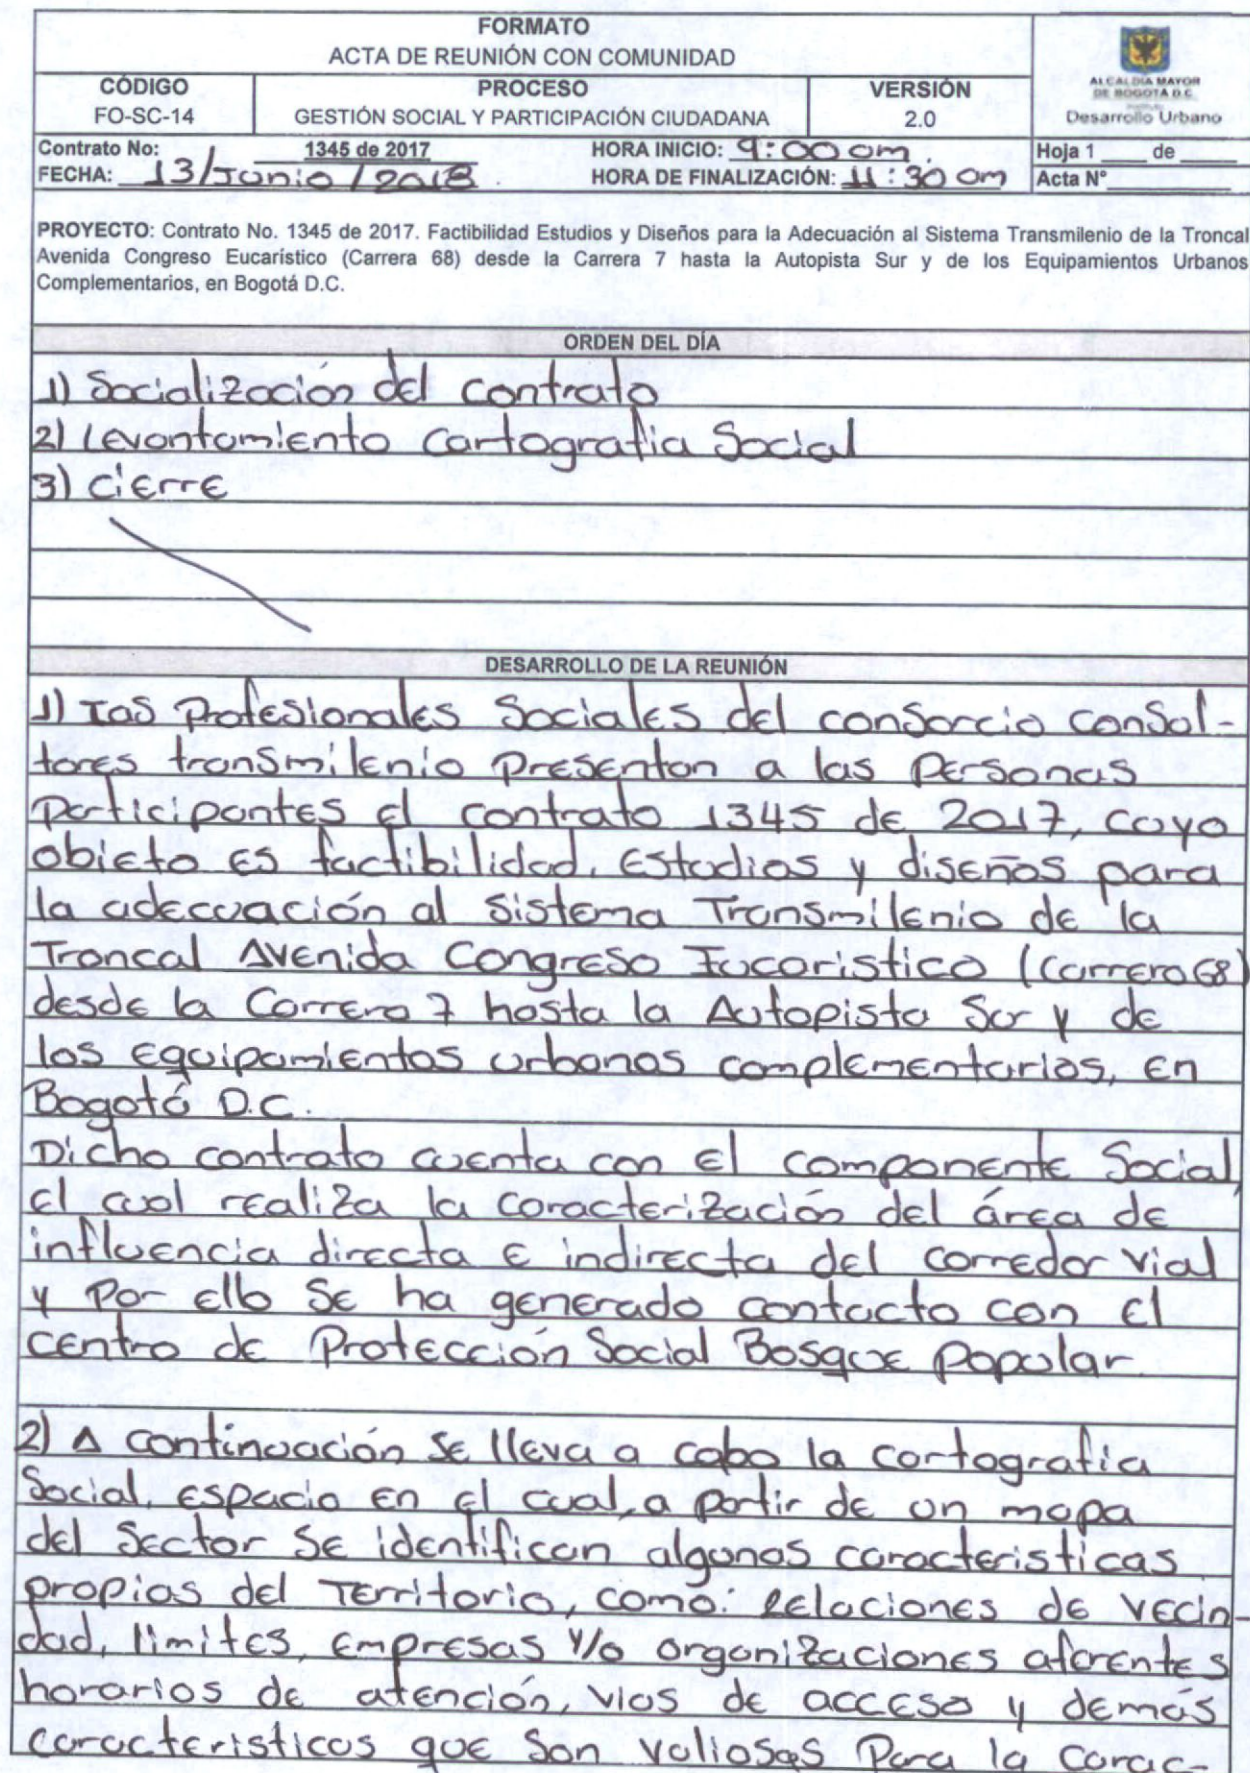 FORMATO
ACTA DE REUNIÓN CON COMUNIDAD
CÓDIGO
FO-SC-14
PROCESO
GESTIÓN SOCIAL Y PARTICIPACIÓN CIUDADANA
VERSIÓN
2.0
ALCALDIA MAYOR
DE BOGOTA D.C.
Instituto
Desarrollo Urbano
Contrato No: 1345 de 2017
FECHA: 13/Junio/2018.
HORA INICIO: 9:00 am.
HORA DE FINALIZACIÓN: 11:30 am
Hoja 1 ____ de ____
Acta N° ____
PROYECTO: Contrato No. 1345 de 2017. Factibilidad Estudios y Diseños para la Adecuación al Sistema Transmilenio de la Troncal
Avenida Congreso Eucarístico (Carrera 68) desde la Carrera 7 hasta la Autopista Sur y de los Equipamientos Urbanos
Complementarios, en Bogotá D.C.
ORDEN DEL DÍA
1) Socialización del contrato
2) Levantamiento Cartografia Social
3) Cierre
DESARROLLO DE LA REUNIÓN
1) Las Profesionales Sociales del consorcio consul-
tores transmilenio Presentan a las Personas
Participantes el contrato 1345 de 2017, cuyo
objeto es factibilidad, Estudios y diseños para
la adecuación al Sistema Transmilenio de la
Troncal Avenida Congreso Eucaristico (Carrera 68)
desde la Carrera 7 hasta la Autopista Sur y de
los Equipamientos urbanos complementarios, en
Bogotá D.C.
Dicho contrato cuenta con el componente Social,
el cual realiza la caracterización del área de
influencia directa e indirecta del corredor vial
y Por ello Se ha generado contacto con el
centro de Protección Social Bosque Popular
2) A continuación Se lleva a cabo la cartografia
Social, espacio en el cual, a partir de un mapa
del Sector Se identifican algunas caracteristicas
propias del Territorio, como: Relaciones de vecin-
dad, limites, Empresas y/o organizaciones aferentes
horarios de atención, vias de acceso y demás
caracteristicas que Son valiosas Para la carac-